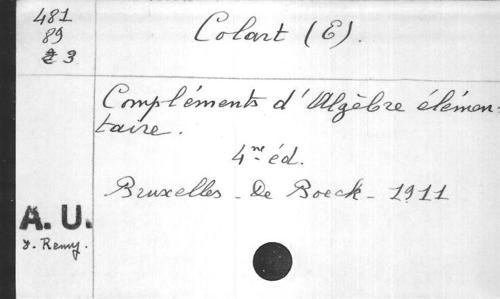 481
89
3
Colart (E).
Compléments d'Algèbre élémen-
taire.
4me éd.
Bruxelles - De Boeck - 1911
A. U.
J. Remy.